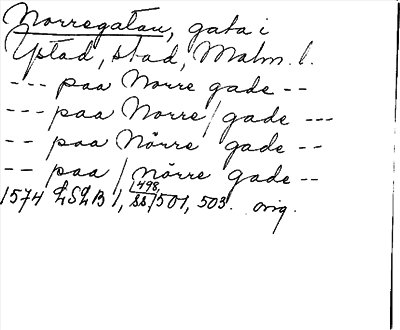 Norregatan, gata i
Ystad, stad, Malm. l.
--- paa Norre gade --
--- paa Norre / gade ---
-- paa Nörre gade --
-- paa / nörre gade --
498,
1574 LSLB 1, SS/501, 503. orig.